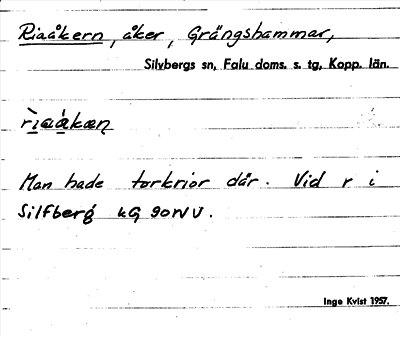 Riaåkern, åker, Grängshammar,
Silvbergs sn, Falu doms. s. tg, Kopp. län.
Man hade torkrior där. Vid r i
Silfberg kG 90NV U.
Inge Kvist 1957.